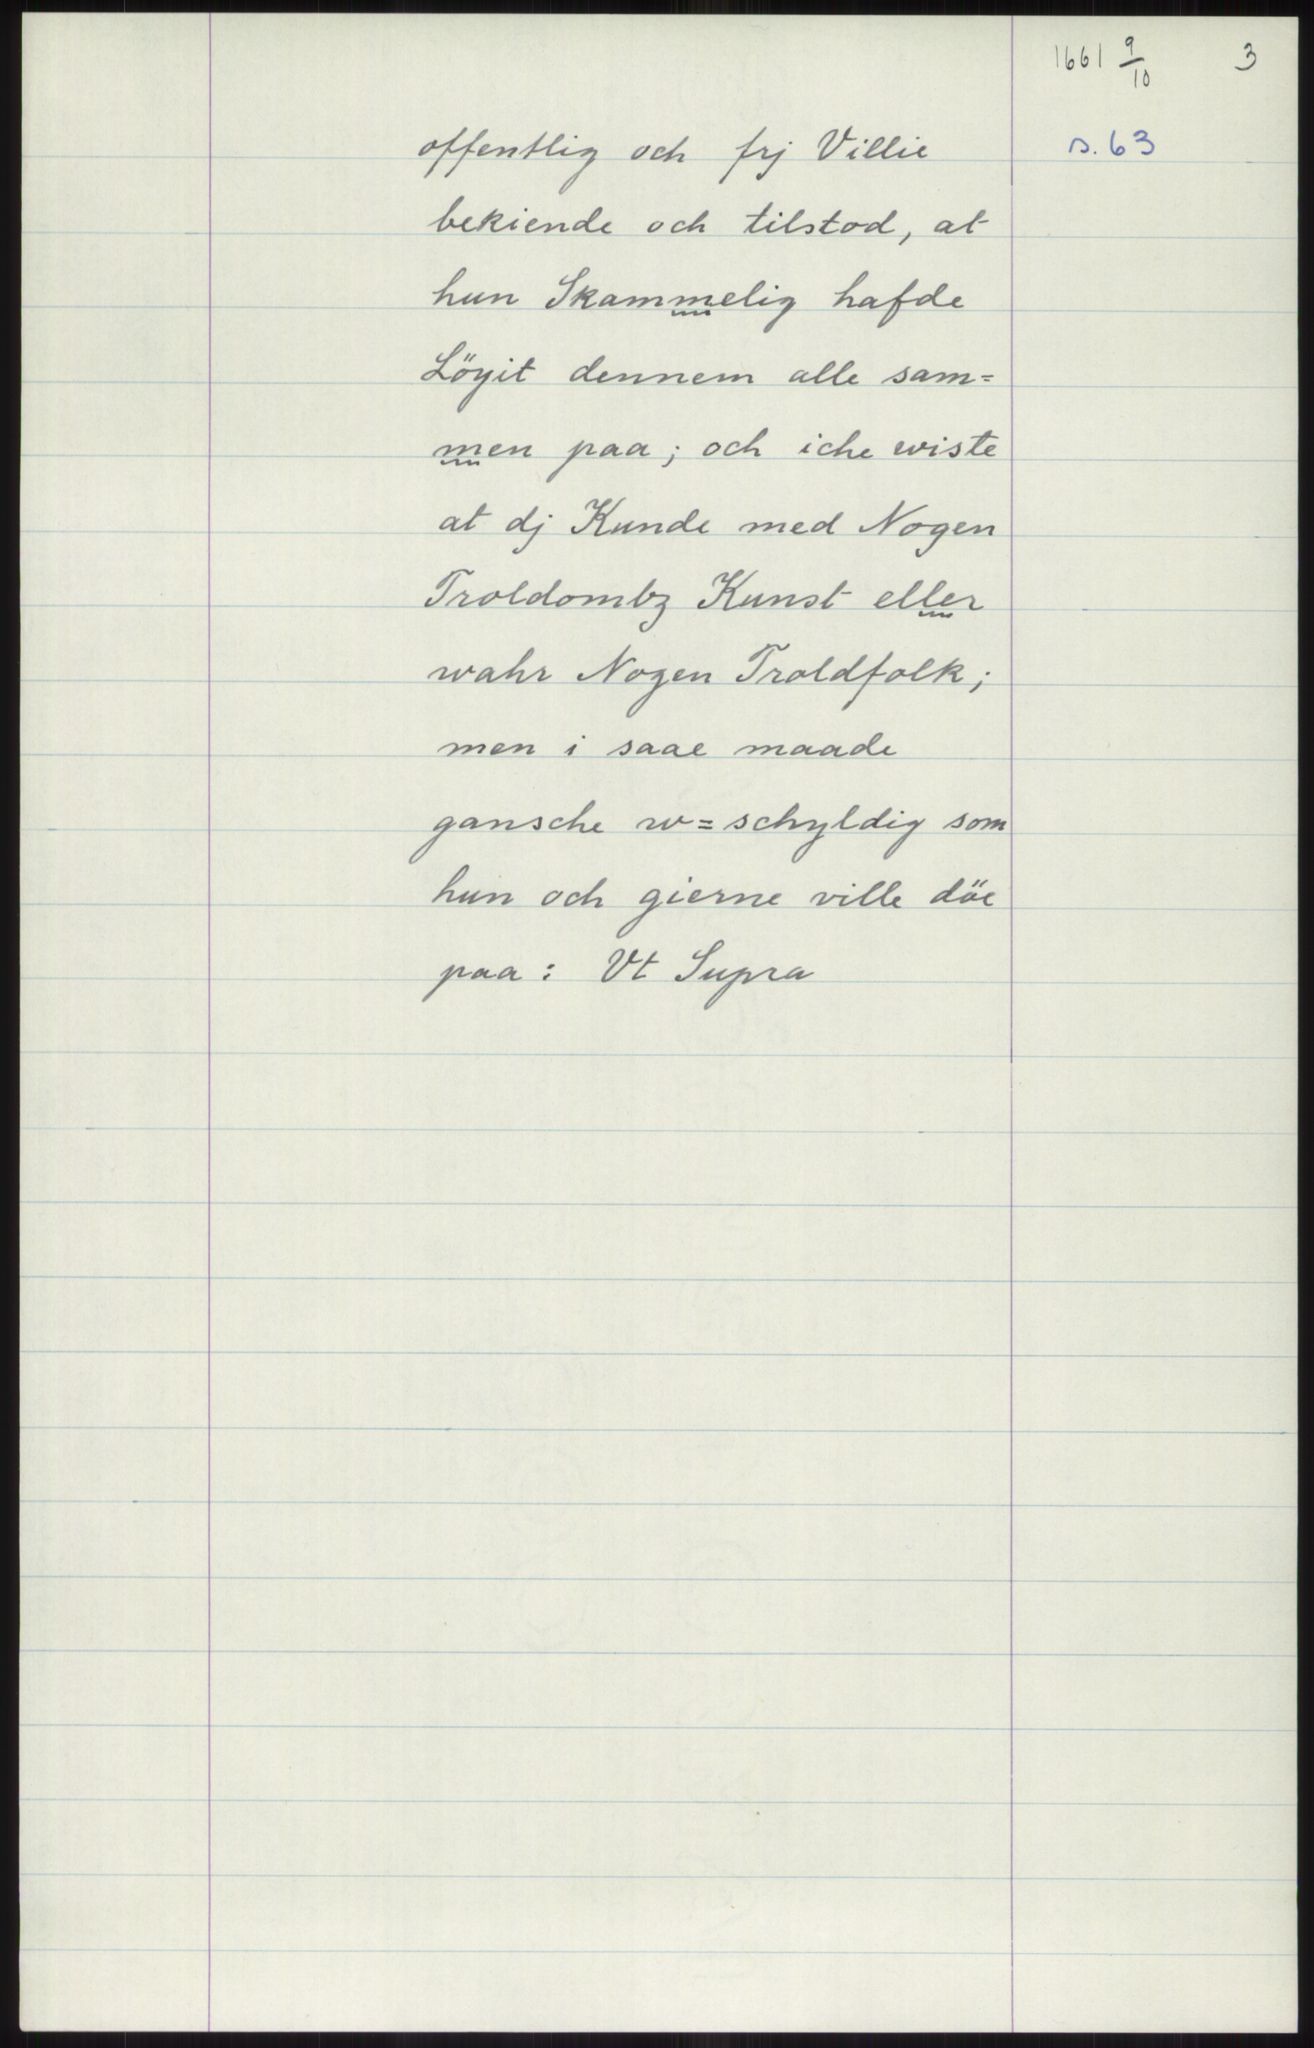 1661 9/10 3
s. 63
offentlig och frj Villie
bekiende och tilstod, at
hun Skammelig hafde
Löyit dennem alle sam=
men paa; och iche wiste
at dj Kunde med Nogen
Troldombz Kunst eller
wahr Nogen Troldfolk;
men i saae maade
gansche w=schyldig som
hun och gierne ville döe
paa: Vt Supra